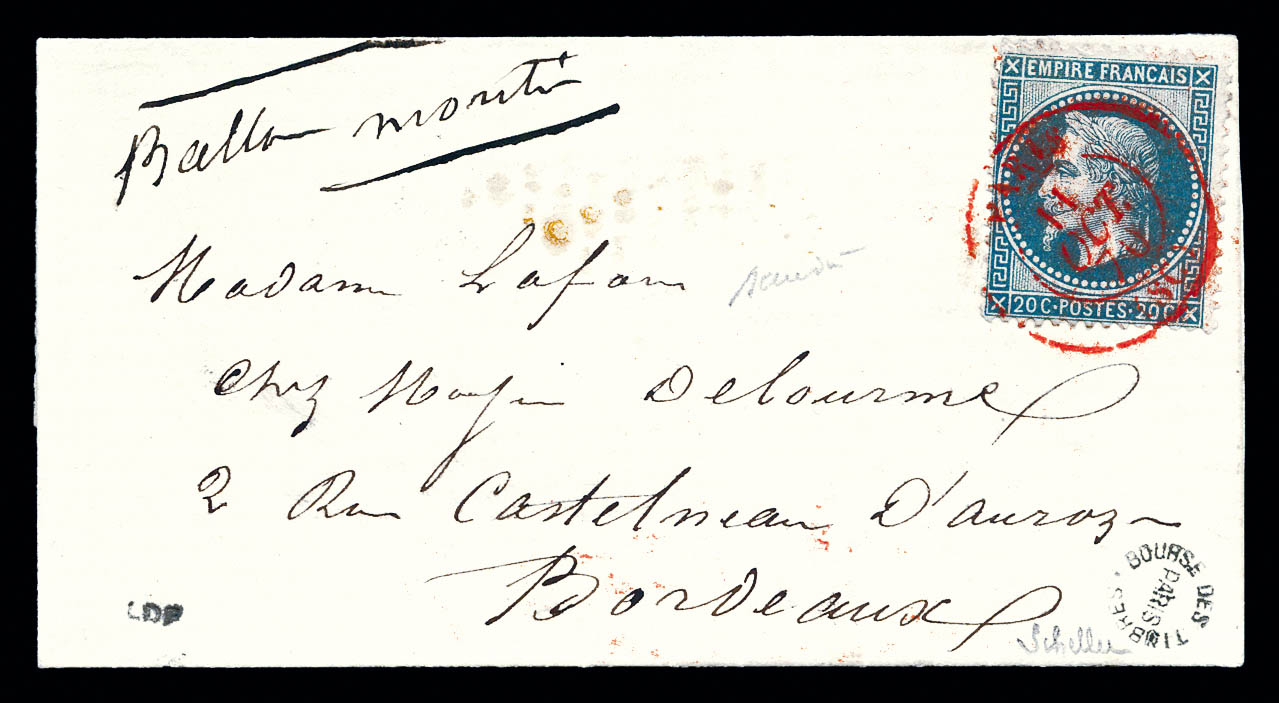 Ballon monté
EMPIRE FRANCAIS
PARIS
11
OCT.
70
20 C·POSTES·20 C
Madame Lafon
Chez Delourme
2 Rue Castelneau D'auroz
Bordeaux
LDP
Scheller
BOURSE DES TIMBRES
PARIS